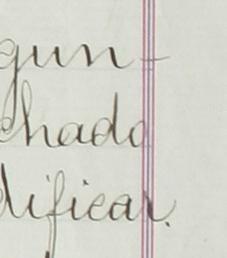 gun-
chado
dificar.